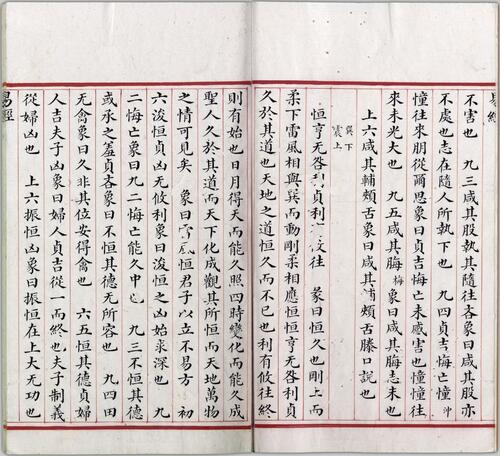 易經
不害也　九三咸其股執其隨往吝象曰咸其股亦
不處也志在隨人所執下也　九四貞吉悔亡憧冲
憧往來朋從爾思象曰貞吉悔亡未感害也憧憧往
來未光大也　九五咸其脢梅象曰咸其脢志末也
上六咸其輔頰舌象曰咸其輔頰舌滕口說也
巽下
震上
恒亨无咎利貞利有攸往　彖曰恒久也剛上而
柔下雷風相與巽而動剛柔相應恒恒亨无咎利貞
久於其道也天地之道恒久而不已也利有攸往終
則有始也日月得天而能久照四時變化而能久成
聖人久於其道而天下化成觀其所恒而天地萬物
之情可見矣　象曰雷風恒君子以立不易方　初
六浚恒貞凶无攸利象曰浚恒之凶始求深也　九
二悔亡象曰九二悔亡能久中也　九三不恒其德
或承之羞貞吝象曰不恒其德无所容也　九四田
无禽象曰久非其位安得禽也　六五恒其德貞婦
人吉夫子凶象曰婦人貞吉從一而終也夫子制義
從婦凶也　上六振恒凶象曰振恒在上大无功也
易經